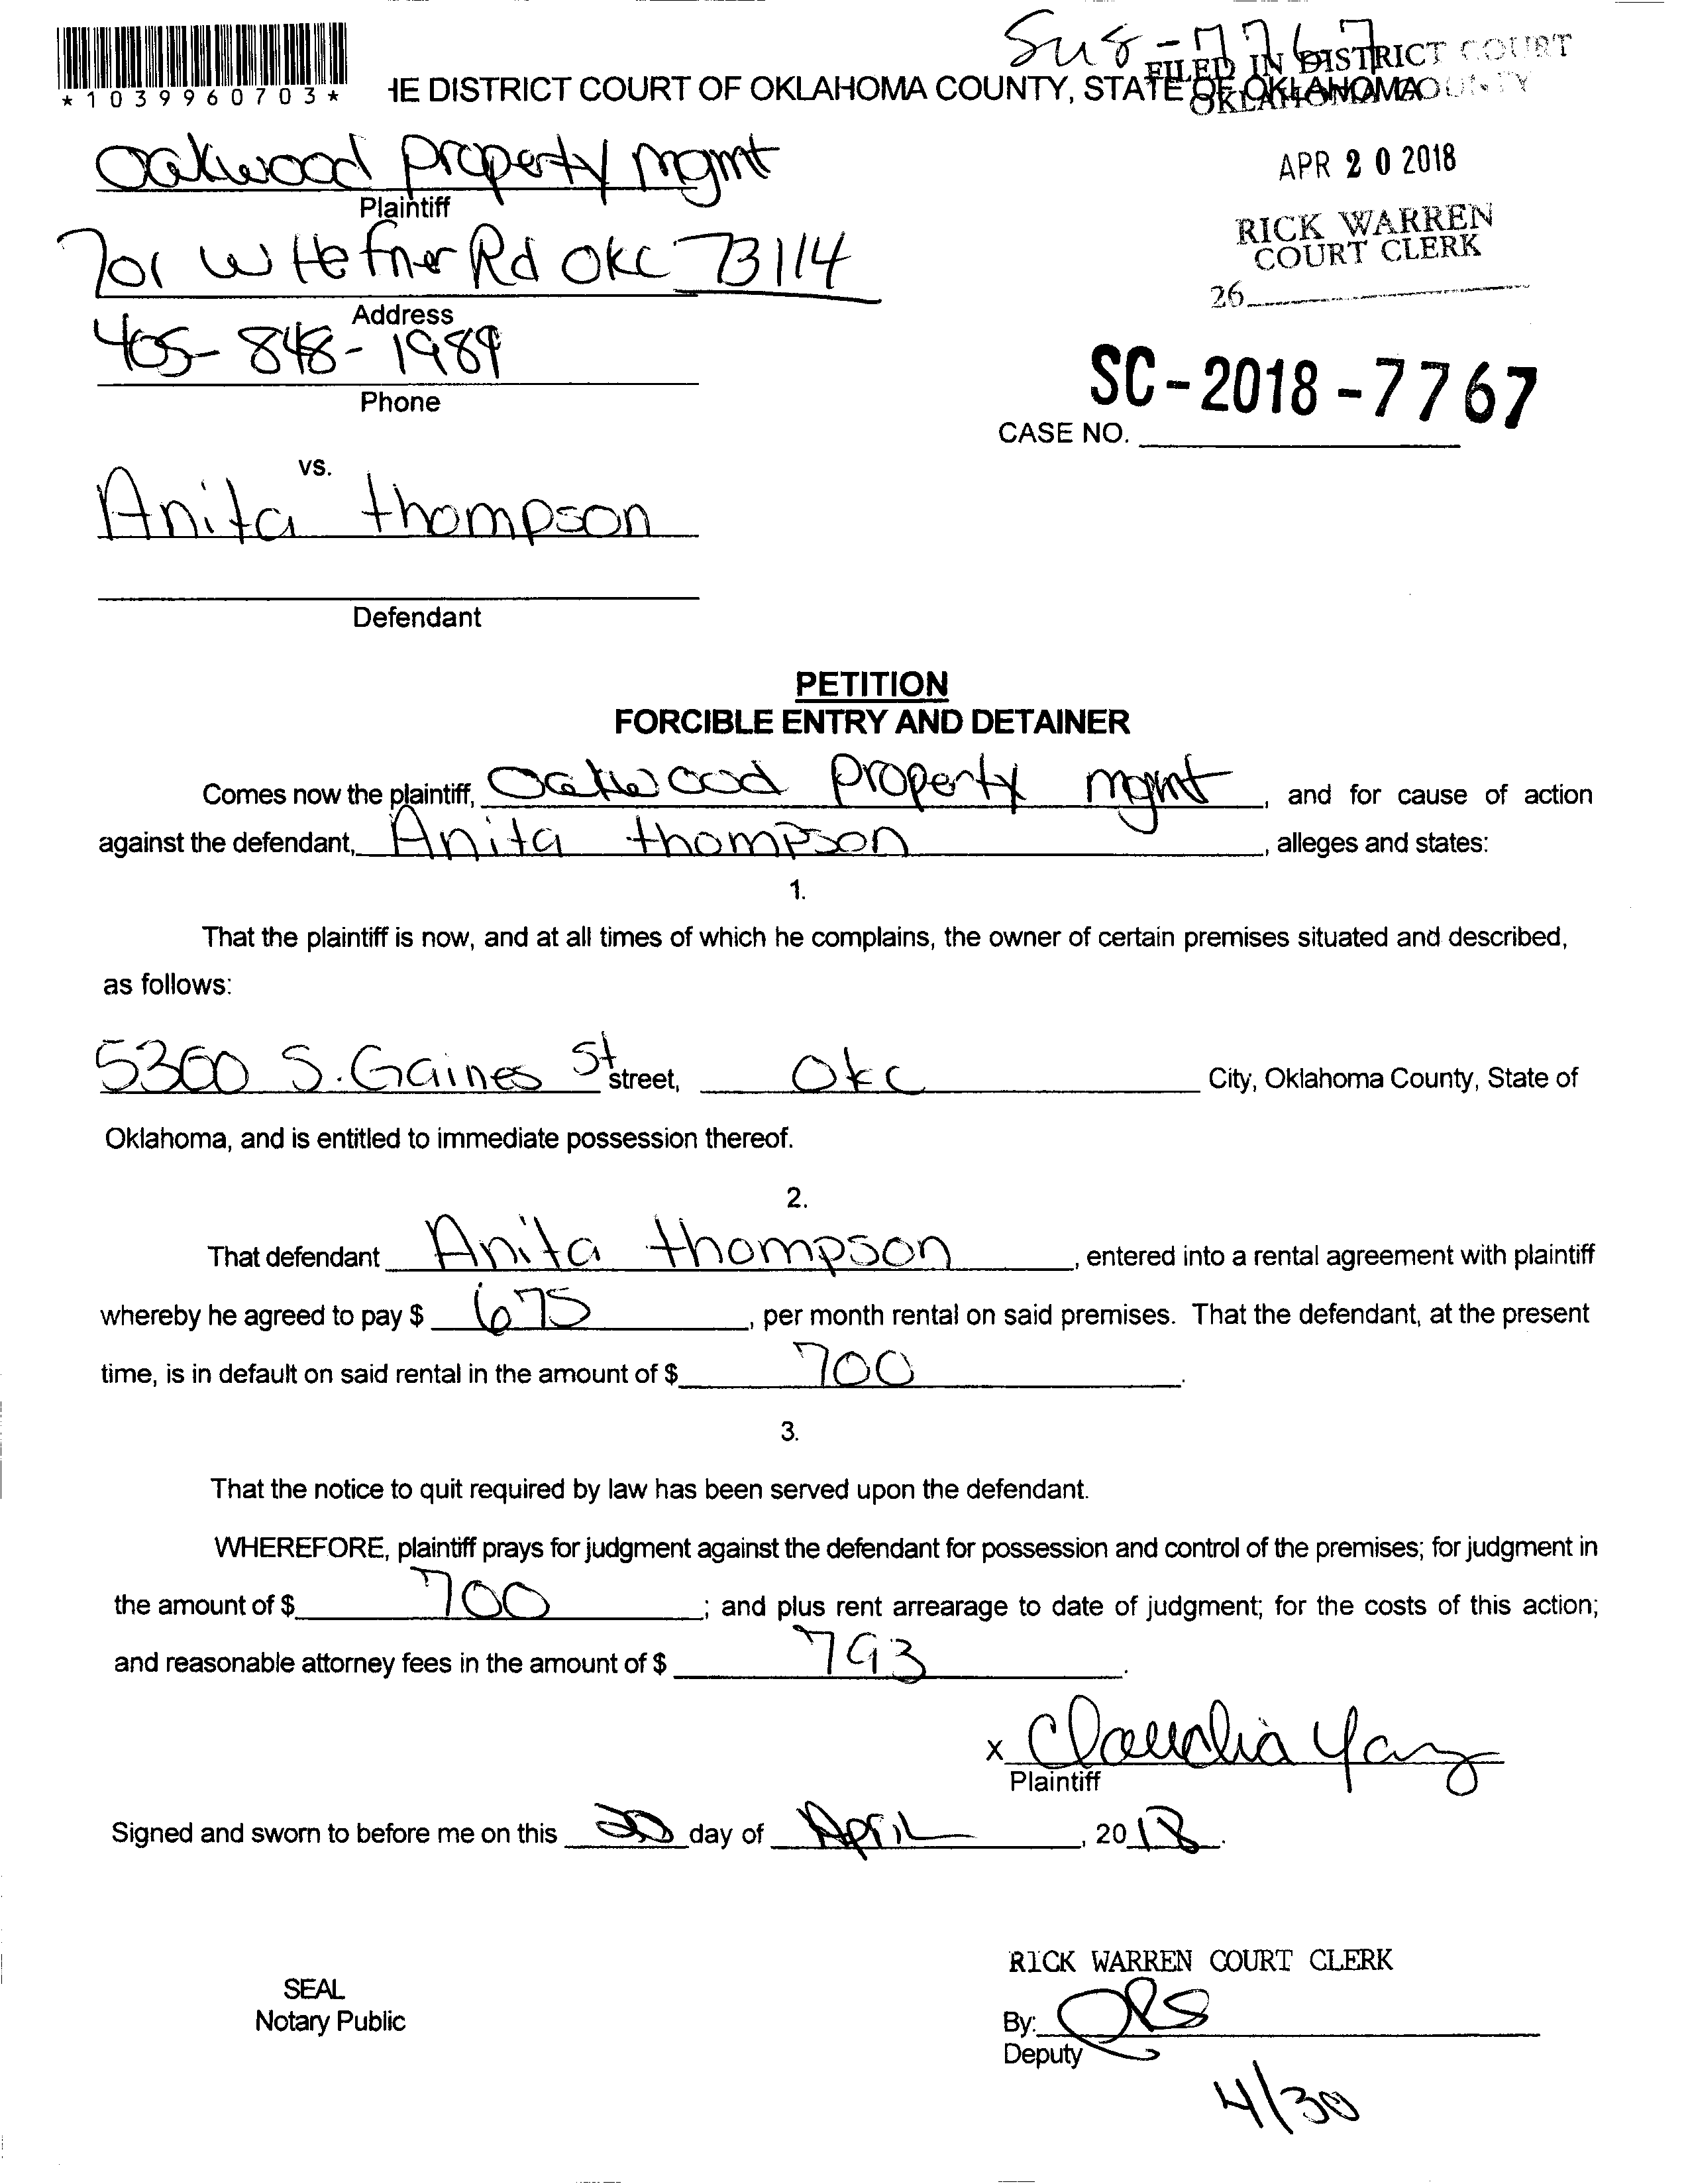 SC18-7767
FILED IN DISTRICT COURT
*1039960703* HE DISTRICT COURT OF OKLAHOMA COUNTY, STATE OF OKLAHOMA
OKLAHOMA COUNTY
Oakwood property mgmt
Plaintiff
APR 20 2018
RICK WARREN
COURT CLERK
26
701 W Hefner Rd OKC 73114
Address
405-848-1989
Phone
SC-2018-7767
CASE NO.
vs.
Anita thompson
Defendant
PETITION
FORCIBLE ENTRY AND DETAINER
Comes now the plaintiff, Oakwood property mgmt, and for cause of action
against the defendant, Anita thompson, alleges and states:
1.
That the plaintiff is now, and at all times of which he complains, the owner of certain premises situated and described,
as follows:
5360 S. Gaines St street, OKC City, Oklahoma County, State of
Oklahoma, and is entitled to immediate possession thereof.
2.
That defendant Anita thompson, entered into a rental agreement with plaintiff
whereby he agreed to pay $ 675, per month rental on said premises. That the defendant, at the present
time, is in default on said rental in the amount of $ 700.
3.
That the notice to quit required by law has been served upon the defendant.
WHEREFORE, plaintiff prays for judgment against the defendant for possession and control of the premises; for judgment in
the amount of $ 700; and plus rent arrearage to date of judgment; for the costs of this action;
and reasonable attorney fees in the amount of $ 793.
x Claudia Yanz
Plaintiff
Signed and sworn to before me on this 20 day of April, 2018.
RICK WARREN COURT CLERK
SEAL
Notary Public
By:
Deputy
4/30